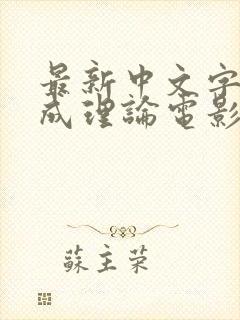 最新中文字
成理論電影
蘇主荣